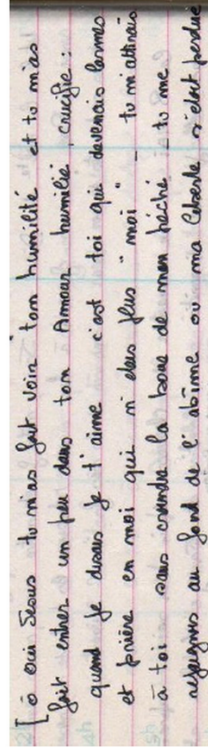 [ô oui Jésus tu m'as fait voir ton humilité et tu m'as
fait entrer un peu dans ton Amour humilié, crucifié :
quand je disais je t'aime c'est toi qui devenais larmes
et prière en moi qui n'étais plus "moi" _ tu m'attirais
à toi sans craindre la boue de mon péché _ tu me
rejoignais au fond de l'abîme où ma liberté s'était perdue